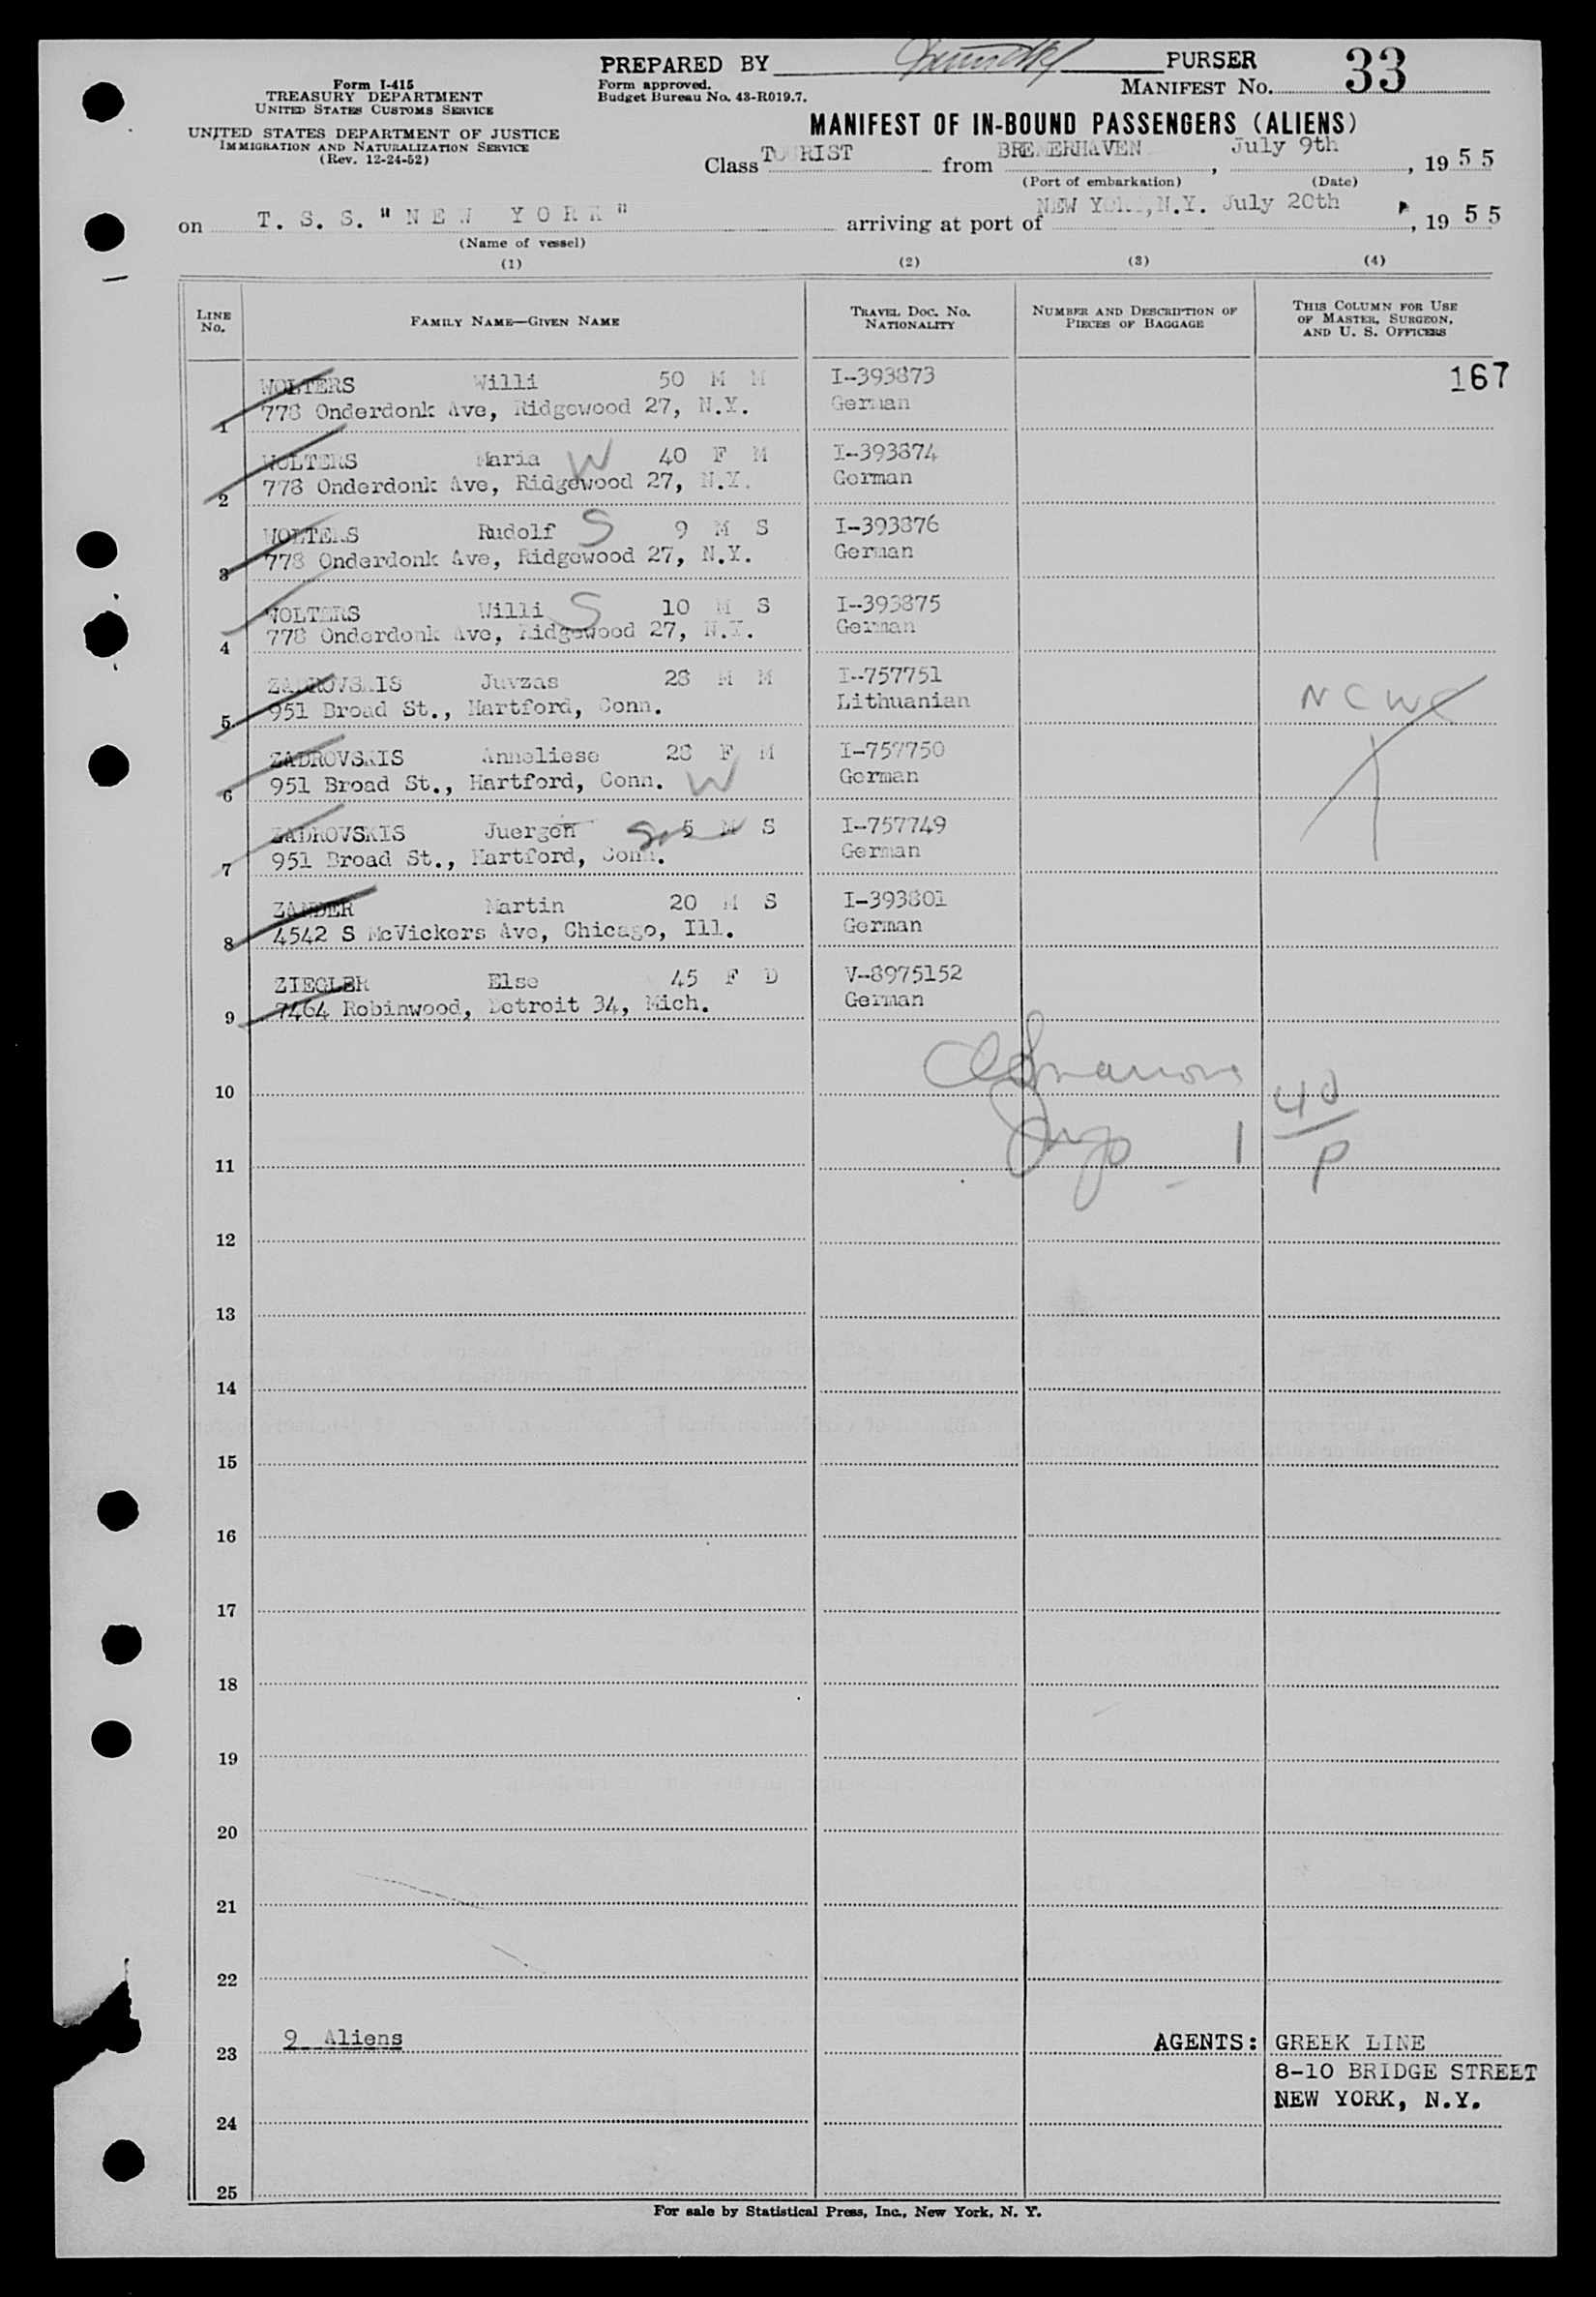 PREPARED BY PURSER
Form I-415
TREASURY DEPARTMENT
UNITED STATES CUSTOMS SERVICE
UNITED STATES DEPARTMENT OF JUSTICE
IMMIGRATION AND NATURALIZATION SERVICE
(Rev. 12-24-52)
Form approved.
Budget Bureau No. 43-R019.7.
MANIFEST NO. 33
MANIFEST OF IN-BOUND PASSENGERS (ALIENS)
Class TOURIST from BREMERHAVEN, July 9th, 19 5 5
(Port of embarkation) (Date)
on T. S. S. "N E W Y O R K" arriving at port of NEW YORK, N.Y. July 20th, 19 5 5
(Name of vessel)
(1) (2) (3) (4)
LINE NO. FAMILY NAME—GIVEN NAME TRAVEL DOC. NO. NATIONALITY NUMBER AND DESCRIPTION OF PIECES OF BAGGAGE THIS COLUMN FOR USE OF MASTER, SURGEON, AND U. S. OFFICERS
167
WOLTERS Willi 50 M M I-393873
1 778 Onderdonk Ave, Ridgewood 27, N.Y. German
WOLTERS Maria W 40 F M I-393874
2 778 Onderdonk Ave, Ridgewood 27, N.Y. German
WOLTERS Rudolf S 9 M S I-393876
3 778 Onderdonk Ave, Ridgewood 27, N.Y. German
WOLTERS Willi S 10 M S I-393875
4 778 Onderdonk Ave, Ridgewood 27, N.Y. German
ZADROVSKIS Juvzas 28 M M I-757751
5 951 Broad St., Hartford, Conn. Lithuanian NCWC
ZADROVSKIS Anneliese 28 F M I-757750
6 951 Broad St., Hartford, Conn. W German
ZADROVSKIS Juergen 5 M S I-757749
7 951 Broad St., Hartford, Conn. German
ZANDER Martin 20 M S I-393801
8 4542 S McVickers Ave, Chicago, Ill. German
ZIEGLER Else 45 F D V-8975152
9 7464 Robinwood, Detroit 34, Mich. German
10
11
12
13
14
15
16
17
18
19
20
21
22
23 9 Aliens AGENTS: GREEK LINE
8-10 BRIDGE STREET
24 NEW YORK, N.Y.
25
For sale by Statistical Press, Inc., New York, N. Y.